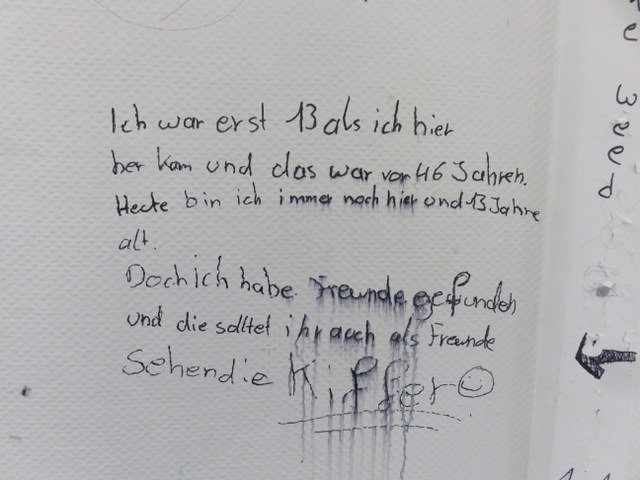 Ich war erst 13 als ich hier
her kam und das war vor 46 Jahren.
Heute bin ich immer noch hier und 13 Jahre
alt.
Doch ich habe Freunde gefunden
und die solltet ihr auch als Freunde
Sehen die Kiffer☺
Weed